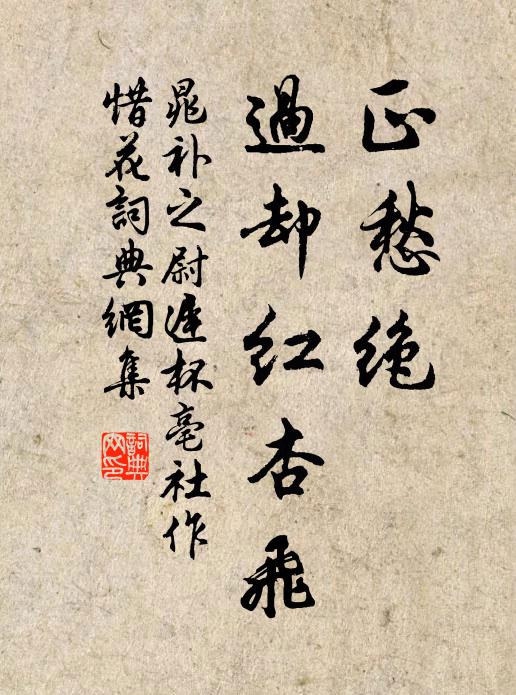 正愁絶
過却紅杏飛
晁补之尉遲杯亳社作
惜花詞典網集
詞典網印